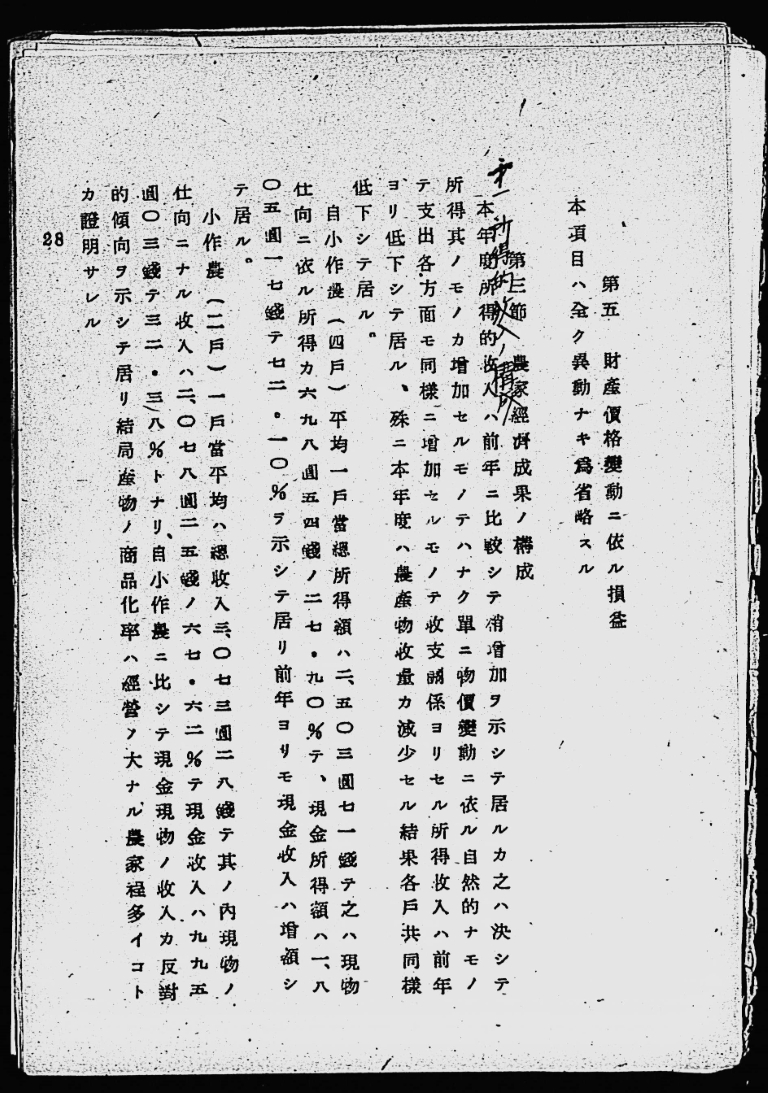 第五 財産價格變動ニ依ル損益
本項目ハ全ク異動ナキ爲省略スル
第三節 農家經濟成果ノ構成
第一 所得的收入ノ構成
本年度所得的收入ハ前年ニ比較シテ稍增加ヲ示シテ居ルカ之ハ決シテ
所得其ノモノカ增加セルモノテハナク單ニ物價變動ニ依ル自然的ナモノ
テ支出各方面モ同樣ニ增加セルモノテ收支關係ヨリセル所得收入ハ前年
ヨリ低下シテ居ル、殊ニ本年度ハ農產物收量カ減少セル結果各戶共同樣
低下シテ居ル。
自小作農(四戶)平均一戶當總所得額ハ二、五〇三圓七一錢テ之ハ現物
仕向ニ依ル所得カ六九八圓五四錢ノ二七・九〇%テ、現金所得額ハ一、八
〇五圓一七錢テ七二。一〇%ヲ示シテ居リ前年ヨリモ現金收入ハ增額シ
テ居ル。
小作農(二戶)一戶當平均ハ總收入三、〇七三圓二八錢テ其ノ內現物ノ
仕向ニナル收入ハ二、〇七八圓二五錢ノ六七・六二%テ現金收入ハ九九五
圓〇三錢テ三二・三八%トナリ、自小作農ニ比シテ現金現物ノ收入カ反對
的傾向ヲ示シテ居リ結局產物ノ商品化率ハ經營ノ大ナル農家程多イコト
カ證明サレル
28